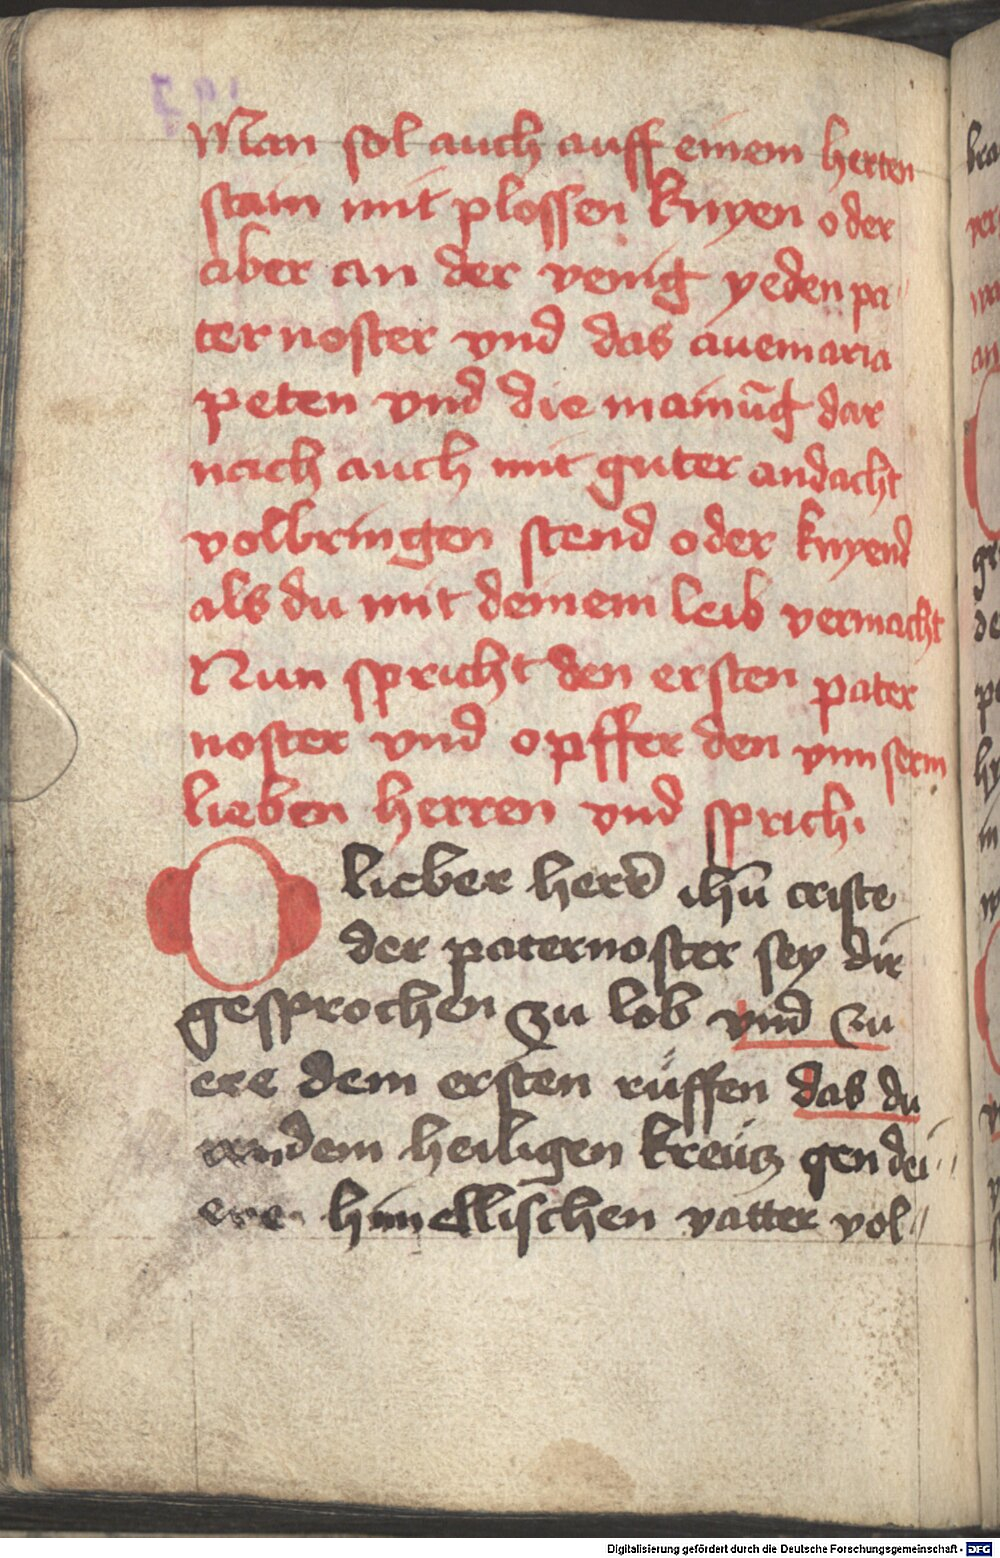 Man sol auch auff einem herten
stain mit plossen knyen oder
aber an der venig yeden pa
ter noster vnd das auemaria
peten vnd die mainūg dar
nach auch mit guter andacht
volbringen stend oder knyend
als du mit deinem leib vermacht
Nun spricht den ersten pater
noster vnd opffer den vnnserm
lieben herren vnd sprich.
O lieber herr ihū criste
der paternoster sey dir
gesprochen zu lob vnd zu
ere dem ersten rüffen das du
an dem heiligen kreüz gen dei
himellischen vatter vol
Digitalisierung gefördert durch die Deutsche Forschungsgemeinschaft - DFG